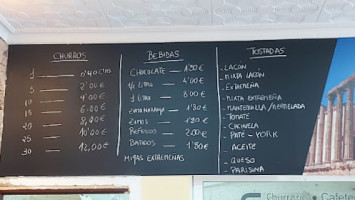 CHURROS
1 0'40 cts
5 2'00€
10 4'00€
15 6'00€
20 8,00€
25 10'00€
30 12,00€
BEBIDAS
CHOCOLATE 1'80€
½ litro 4'00€
1 litro 8'00€
ZUMO NARANJA
ZUMOS
REFRESCO 2'00€
BATIDOS 1'80€
MIGAS EXTREMEÑAS
TOSTADAS
- LACÓN
- MIXTA LACÓN
- EXTREMEÑA
- MIXTA EXTREMEÑA
- MANTEQUILLA/MERMELADA
- TOMATE
- PATE - YORK
- ACEITE
- QUESO
- PARISINA
Churrería • Cafete